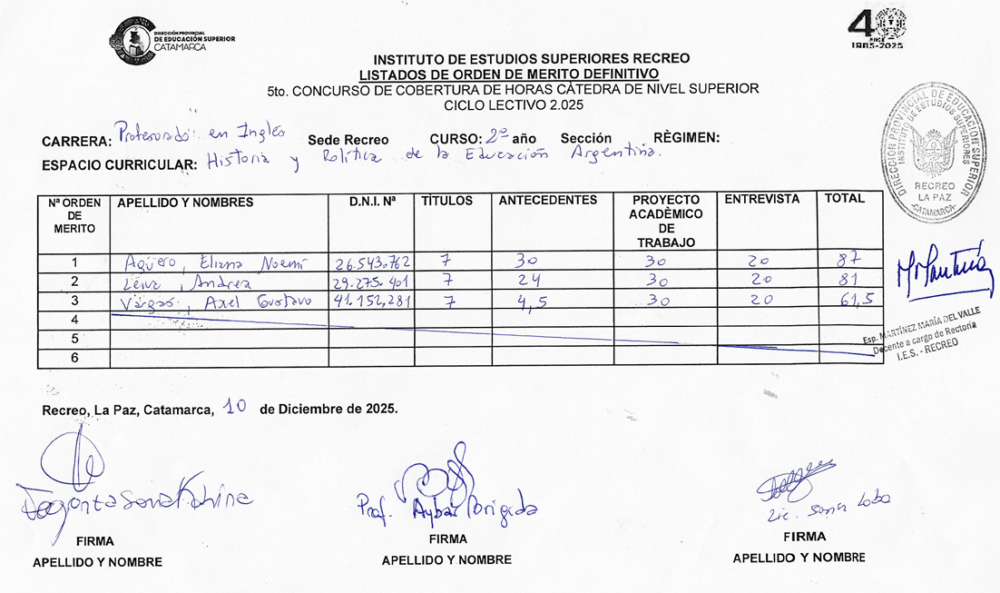 DIRECCIÓN PROVINCIAL
DE EDUCACIÓN SUPERIOR
CATAMARCA
40
1985-2025
INSTITUTO DE ESTUDIOS SUPERIORES RECREO
LISTADOS DE ORDEN DE MERITO DEFINITIVO
5to. CONCURSO DE COBERTURA DE HORAS CÁTEDRA DE NIVEL SUPERIOR
CICLO LECTIVO 2.025
CARRERA: Profesorado en Inglés Sede Recreo CURSO: 2º año Sección RÈGIMEN:
ESPACIO CURRICULAR: Historia y Política de la Educación Argentina.
DIRECCIÓN PROVINCIAL DE EDUCACIÓN SUPERIOR
INSTITUTO DE ESTUDIOS SUPERIORES
RECREO
LA PAZ
-CATAMARCA-
Nª ORDEN DE MERITO APELLIDO Y NOMBRES D.N.I. Nª TÍTULOS ANTECEDENTES PROYECTO ACADÈMICO DE TRABAJO ENTREVISTA TOTAL
1 Agüero, Eliana Noemí 26.543.762 7 30 30 20 87
2 Leiva, Andrea 29.275.401 7 24 30 20 81
3 Vargas, Axel Gustavo 41.152,281 7 4,5 30 20 61,5
4
5
6
Esp. MARTÍNEZ MARÍA DEL VALLE
Docente a cargo de Rectoría
I.E.S. - RECREO
Recreo, La Paz, Catamarca, 10 de Diciembre de 2025.
Prof. Aybar Brigida
Lic. Sonia Lobo
FIRMA FIRMA FIRMA
APELLIDO Y NOMBRE APELLIDO Y NOMBRE APELLIDO Y NOMBRE